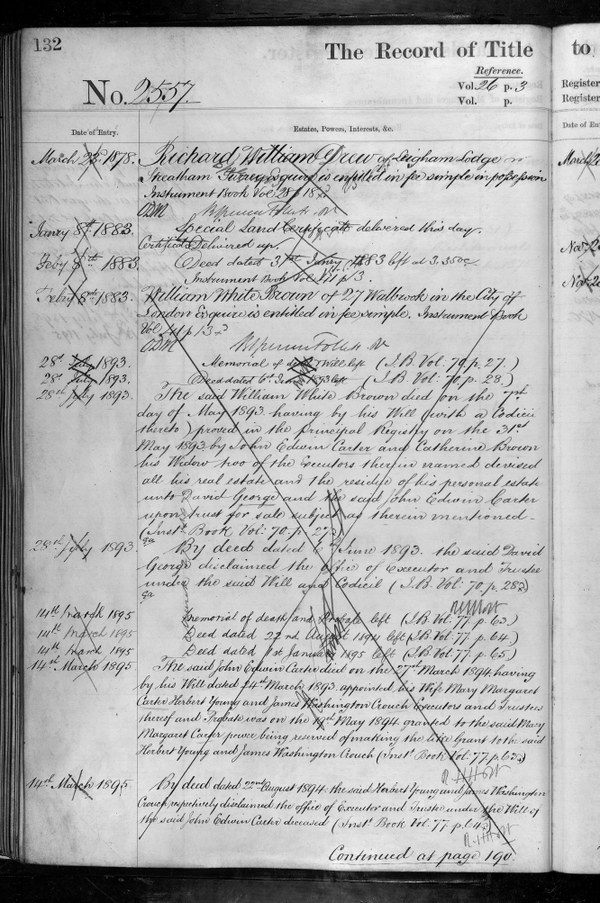 132
The Record of Title
to
Reference.
No. 2557.
Vol. 26 p. 3
Vol. p.
Register
Register
Date of Entry.
Estates, Powers, Interests, &c.
Date of Ent
March 25th 1878.
Richard William Drew of Leigham Lodge
Streatham Surrey Esquire is entitled in fee simple in possession
Instrument Book Vol 28 p 18
March 2
Janry 8th 1883.
Special Land Certificate delivered this day.
Certificate Delivered up.
Feby 8th 1883.
Deed dated 31st Janry 1883 left at 3.35 oc
Instrument Book Vol 41 p 13.
Feby 8th 1883.
William White Brown of 27 Walbrook in the City of
London Esquire is entitled in fee simple. Instrument Book
Vol 41 p 13
28th July 1893.
Memorial of Will left (I.B. Vol. 70. p. 27.)
28th July 1893.
Deed dated 6th June 1893 left (I.B. Vol. 70. p. 28.)
28th July 1893
The said William White Brown died on the 7th
day of May 1893 having by his Will (with a Codicil
thereto) proved in the Principal Registry on the 31st
May 1893 by John Edwin Carter and Catherine Brown
his Widow two of the Executors therein named devised
all his real estate and the residue of his personal estate
unto David George and the said John Edwin Carter
upon trust for sale subject as therein mentioned -
(Inst. Book Vol: 70. p. 27)
28th July 1893
By deed dated June 1893. the said David
George disclaimed the office of Executor and Trustee
under the said Will and Codicil (I.B. Vol: 70. p. 28)
14th March 1895
Memorial of death and Probate left (I.B. Vol. 77 p. 63.)
14th March 1895
Deed dated 22nd August 1894 left (I.B. Vol. 77 p. 64.)
14th March 1895
Deed dated 1st January 1895 left (I.B. Vol: 77. p. 65)
14th March 1895
The said John Edwin Carter died on the 27th March 1894 having
by his Will dated 24th March 1893. appointed his Wife Mary Margaret
Carter Herbert Young and James Washington Crouch Executors and Trustees
thereof and Probate was on the 19th May 1894 granted to the said Mary
Margaret Carter power being reserved of making the like Grant to the said
Herbert Young and James Washington Crouch (Inst. Book Vol: 77. p. 63)
14th March 1895
By deed dated 22nd August 1894 the said Herbert Young and James Washington
Crouch respectively disclaimed the office of Executor and Trustee under the Will of
the said John Edwin Carter deceased (Inst. Book Vol. 77 p. 64)
Continued at page 190.